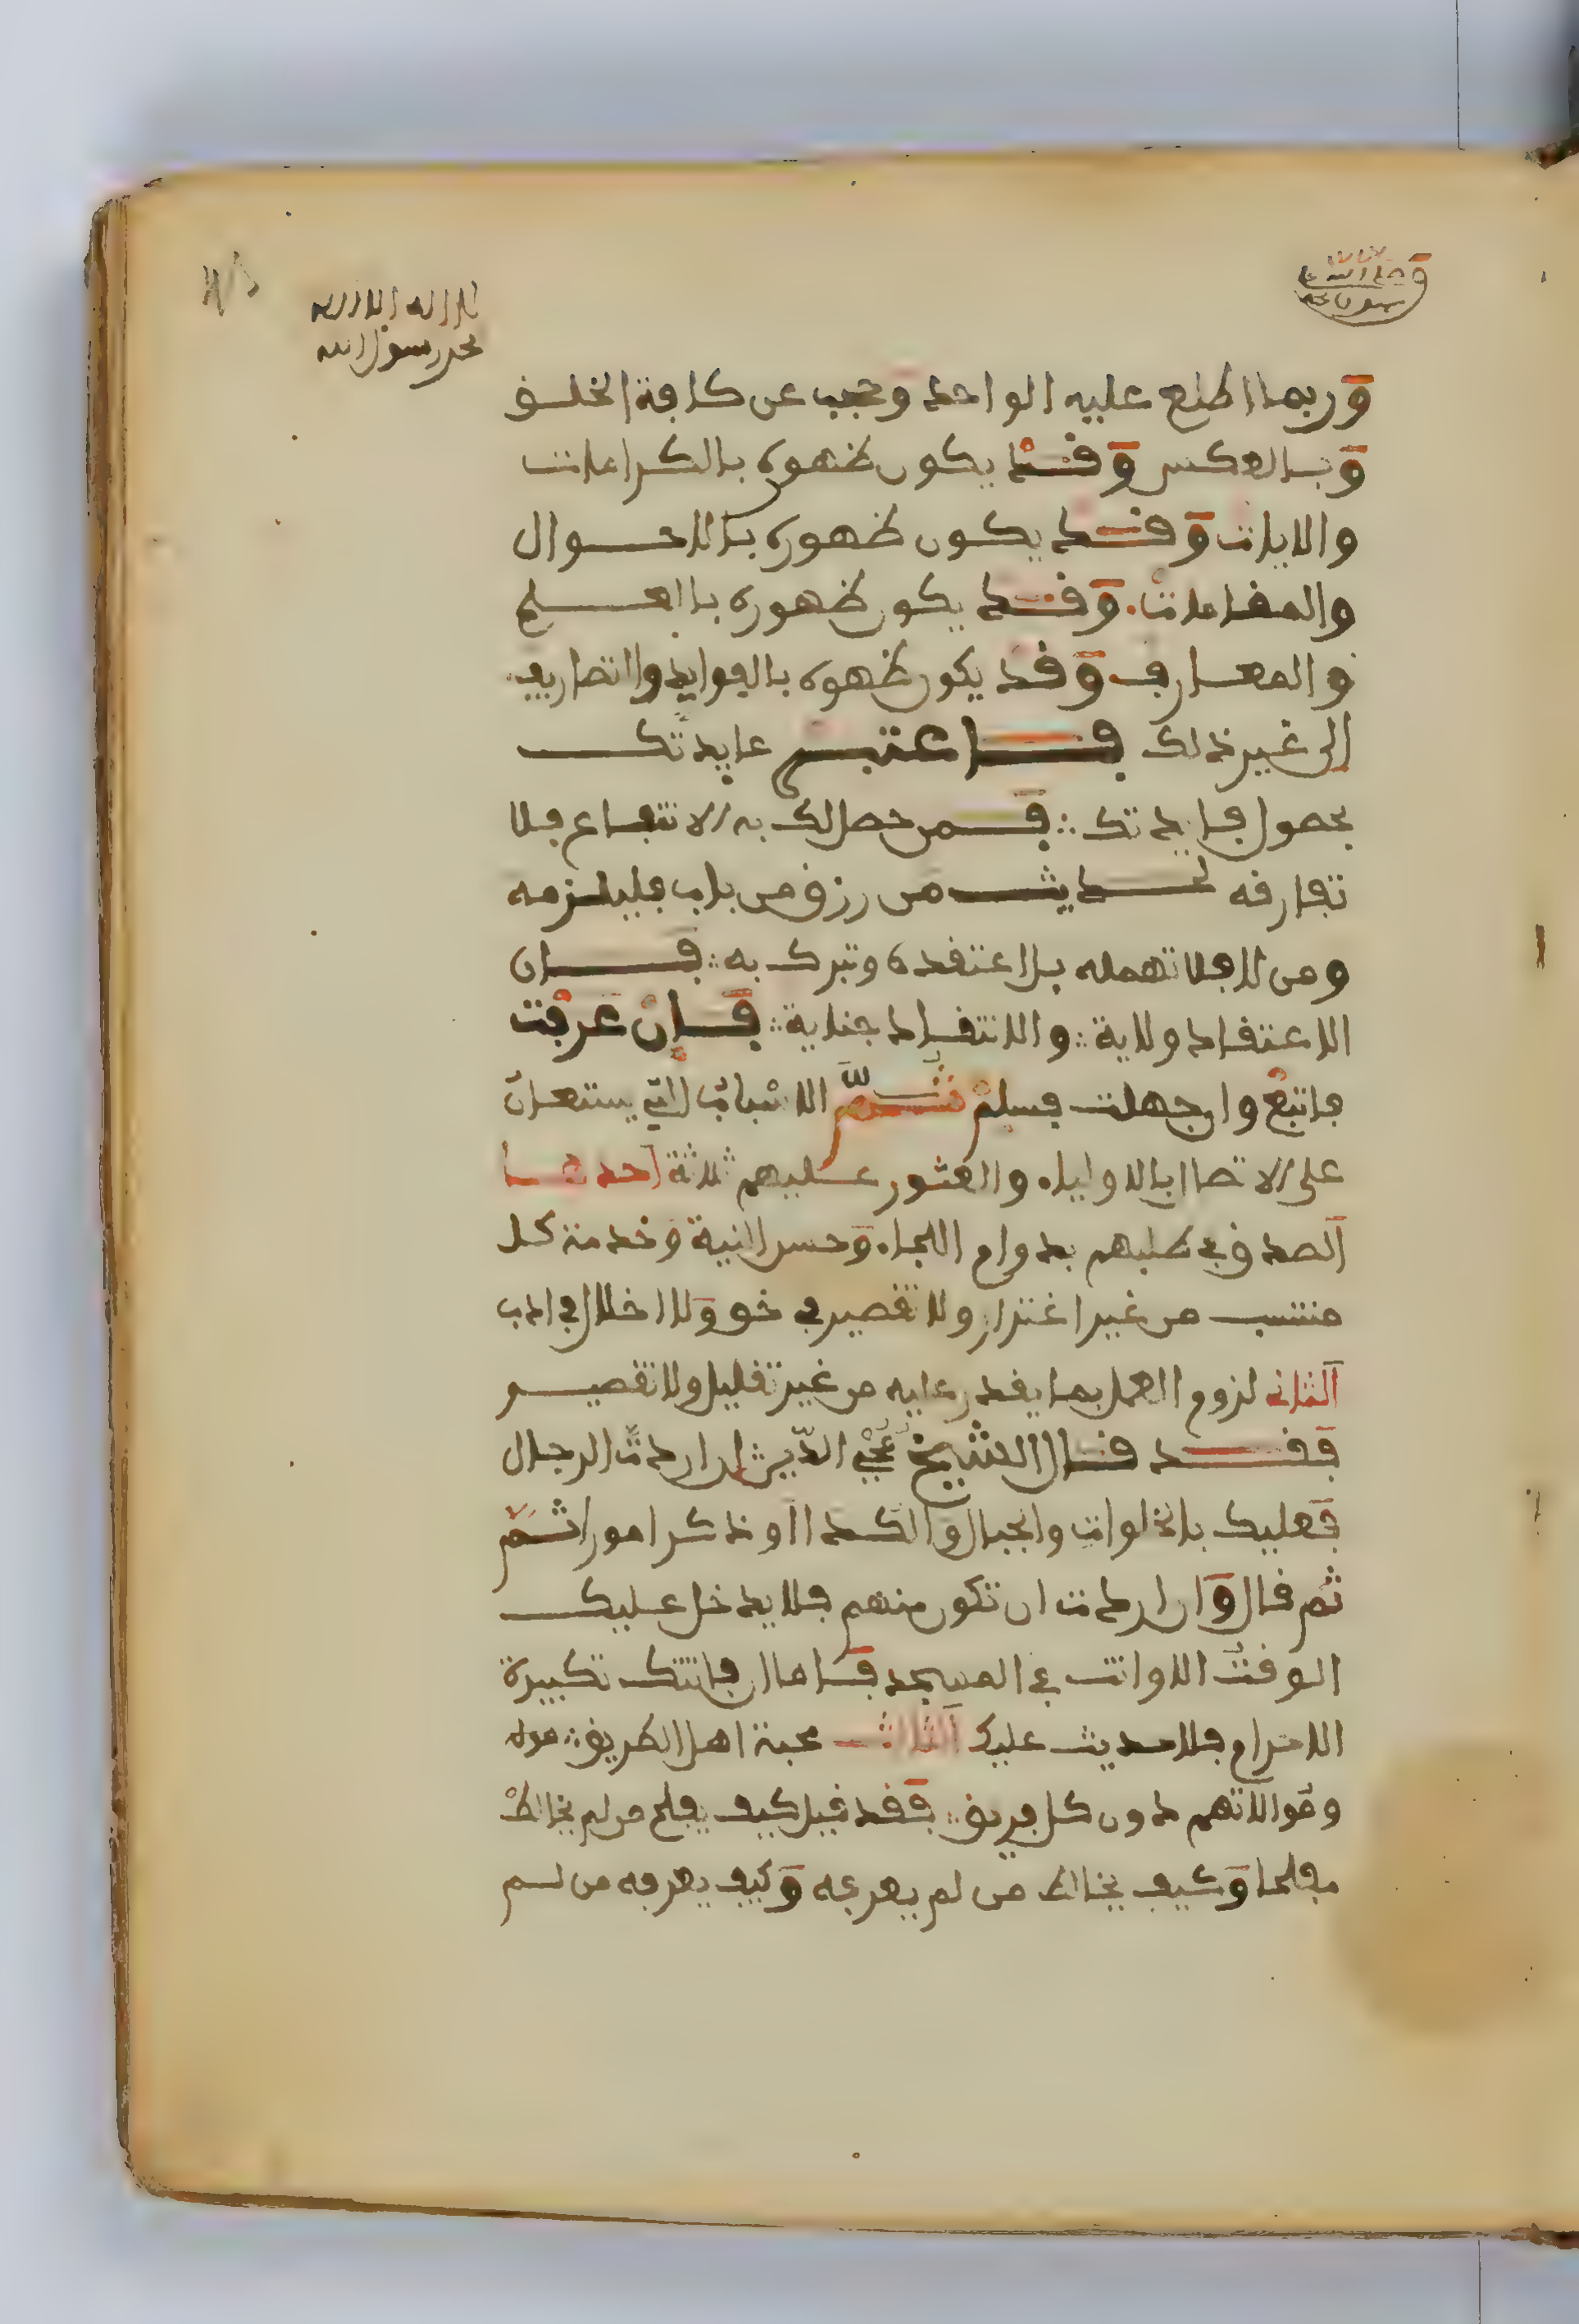 لا اله الا الله
محمد رسول الله
وربما اطلع عليه الواحد وحجب عن كافة الخلق
وبالعكس وقد يكون ظهوره بالكرامات
والايات وقد يكون ظهوره بالاحوال
والمقامات. وقد يكون ظهوره بالعلم
والمعارف وقد يكون ظهوره بالفوايد والتصاريف
الى غير ذلك فاعتبر عايدتك
بحصول فايدتك ∴ فمن حصل لك به الانتفاع فلا
تفارقه لحديث من رزق من باب فليلزمه
ومن لا فلا تهمله بل اعتقده وتبرك به ∴ فان
الاعتقاد ولاية ∴ والانتقاد جناية ∴ فإن عرفت
فاتبع وان جهلت فسلم ثم الاسباب التي يستعان
على الاتصال بالاولياء والعثور عليهم ثلاثة احدها
الصدق في طلبهم بدوام اللجاء وحسن النية وخدمة كل
منتسب من غير اغترار ولا تقصير في حق ولا اخلال في ادب
الثاني لزوم العمل بما يقدر عليه من غير تقليل ولا تقصير
فقد قال الشيخ محيي الدين ان اردت الرجال
فعليك بالخلوات والجبال و وذكر امورا ثم
ثم قال وان اردت ان تكون منهم فلا يدخل عليك
الوقت الا وانت في المسجد فاما ان فاتتك تكبيرة
الاحرام فلا حديث عليك الثالث محبة اهل الطريق ∴
وموالاتهم دون كل فريق ∴ فقد قيل كيف يفلح من لم يخالط
مفلحا وكيف يخالط من لم يعرفه وكيف يعرفه من لم